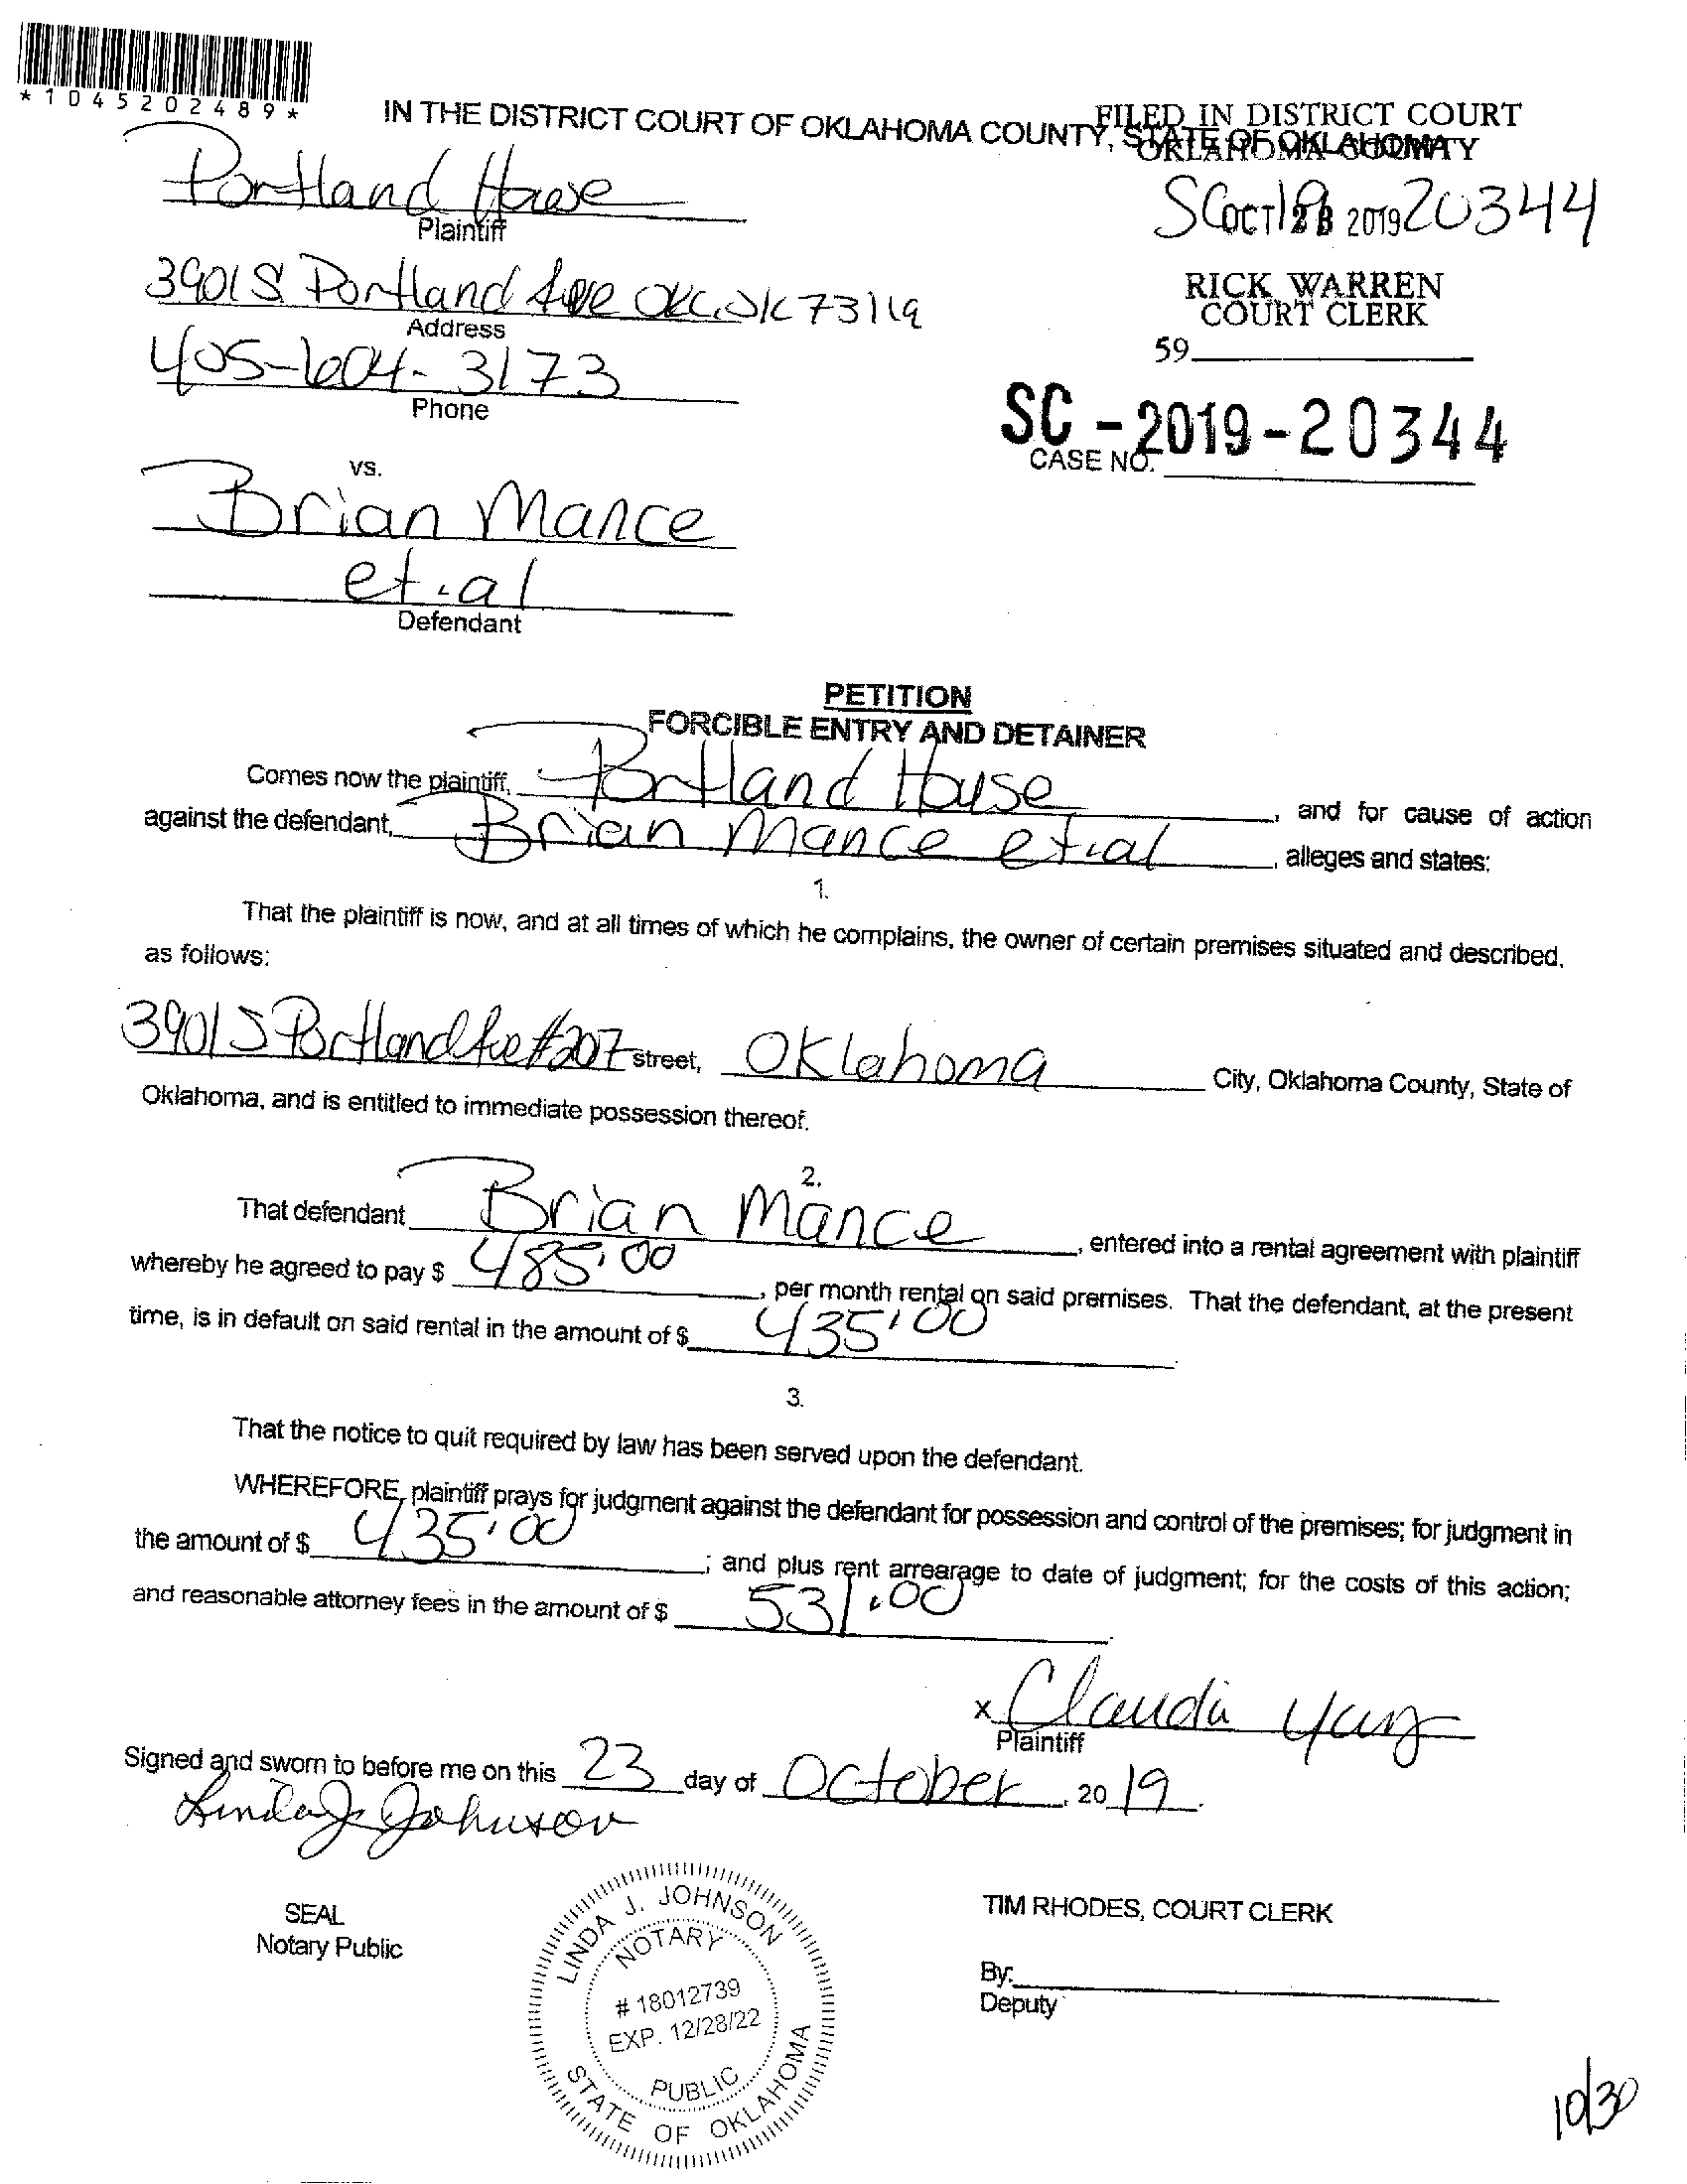 *1045202489*
IN THE DISTRICT COURT OF OKLAHOMA COUNTY, STATE OF OKLAHOMA
FILED IN DISTRICT COURT
OKLAHOMA COUNTY
Portland House
Plaintiff
SC 19 20344
OCT 23 2019
3901 S Portland Ave OKC, OK 73119
Address
RICK WARREN
COURT CLERK
405-604-3173
Phone
59
SC-2019-20344
CASE NO.
vs.
Brian Mance
et.al
Defendant
PETITION
FORCIBLE ENTRY AND DETAINER
Comes now the plaintiff, Portland House, and for cause of action
against the defendant, Brian Mance et.al, alleges and states:
1.
That the plaintiff is now, and at all times of which he complains, the owner of certain premises situated and described,
as follows:
3901 S Portland Ave #207 street, Oklahoma City, Oklahoma County, State of
Oklahoma, and is entitled to immediate possession thereof.
2.
That defendant Brian Mance, entered into a rental agreement with plaintiff
whereby he agreed to pay $ 485.00, per month rental on said premises. That the defendant, at the present
time, is in default on said rental in the amount of $ 435.00
3.
That the notice to quit required by law has been served upon the defendant.
WHEREFORE, plaintiff prays for judgment against the defendant for possession and control of the premises; for judgment in
the amount of $ 435.00; and plus rent arrearage to date of judgment; for the costs of this action;
and reasonable attorney fees in the amount of $ 531.00
x Claudia
Plaintiff
Signed and sworn to before me on this 23 day of October, 2019.
Linda J Johnson
SEAL
Notary Public
LINDA J. JOHNSON
NOTARY
# 18012739
EXP. 12/28/22
PUBLIC
STATE OF OKLAHOMA
TIM RHODES, COURT CLERK
By:
Deputy
10/30